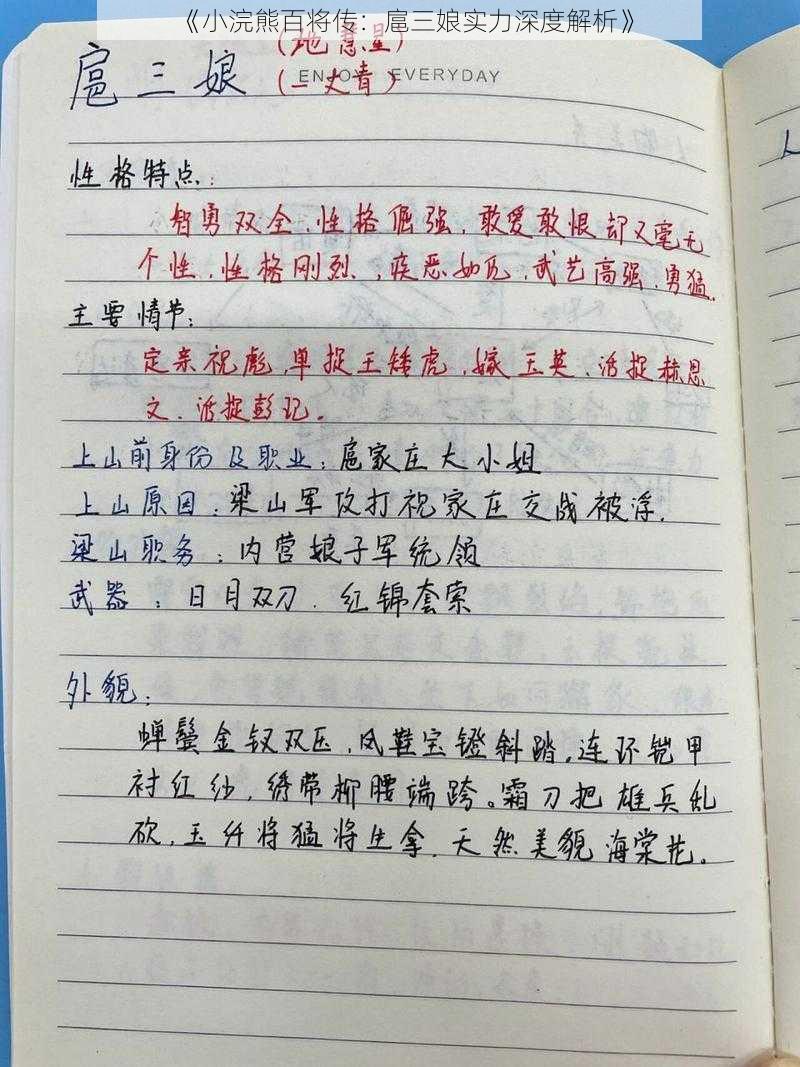 《小浣熊百将传：扈三娘实力深度解析》
扈三娘（地慧星）
（一丈青）
ENJOY EVERYDAY
性格特点：
智勇双全、性格倔强，敢爱敢恨却又毫无
个性，性格刚烈，疾恶如仇，武艺高强，勇猛
主要情节：
定亲祝彪，单捉王矮虎，嫁王英，活捉赫思
文，活捉彭玘。
上山前身份及职业：扈家庄大小姐
上山原因：梁山军攻打祝家庄交战被浮.
梁山职务：内营娘子军统领
武器：日月双刀．红锦套索
外貌：
蝉鬓金钗双压，凤鞋宝镫斜踏，连环铠甲
衬红纱，绣带柳腰端跨。霜刀把雄兵乱
砍，玉纤将猛将生拿，天然美貌海棠花。